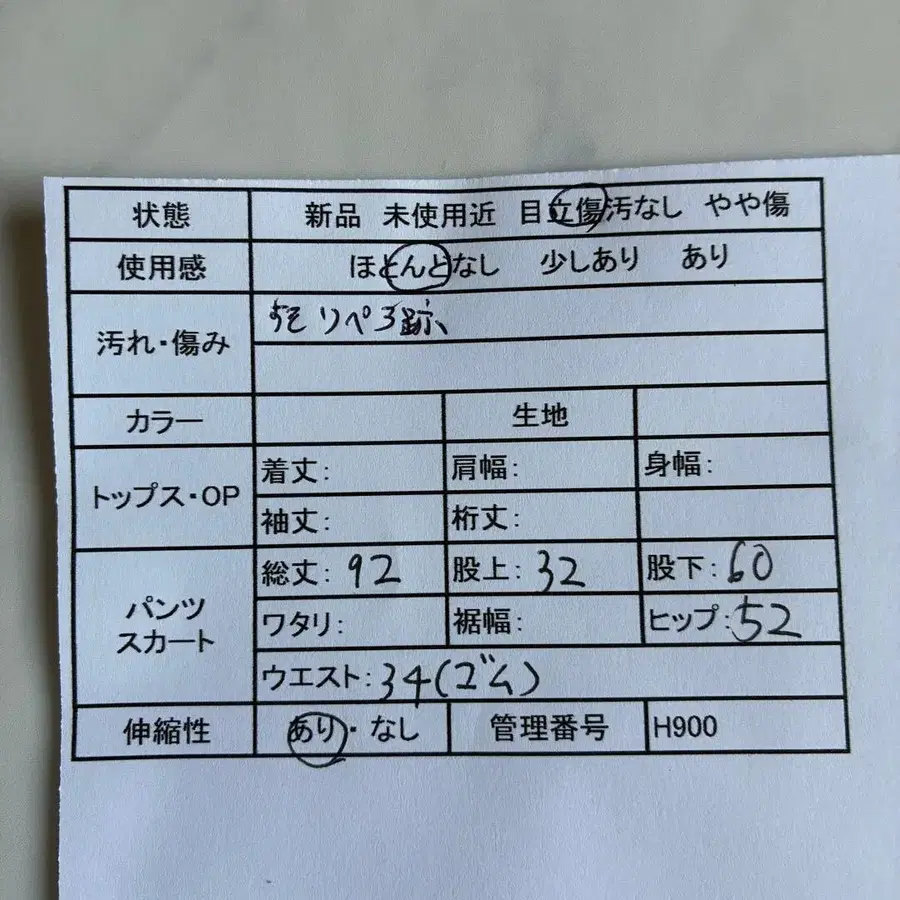 状態 新品 未使用近 目立傷汚なし やや傷
使用感 ほとんどなし 少しあり あり
汚れ・傷み すそ リペア跡、
カラー 生地
トップス・OP 着丈: 肩幅: 身幅:
袖丈: 裄丈:
パンツ スカート 総丈: 92 股上: 32 股下: 60
ワタリ: 裾幅: ヒップ: 52
ウエスト: 34(ゴム)
伸縮性 あり・なし 管理番号 H900